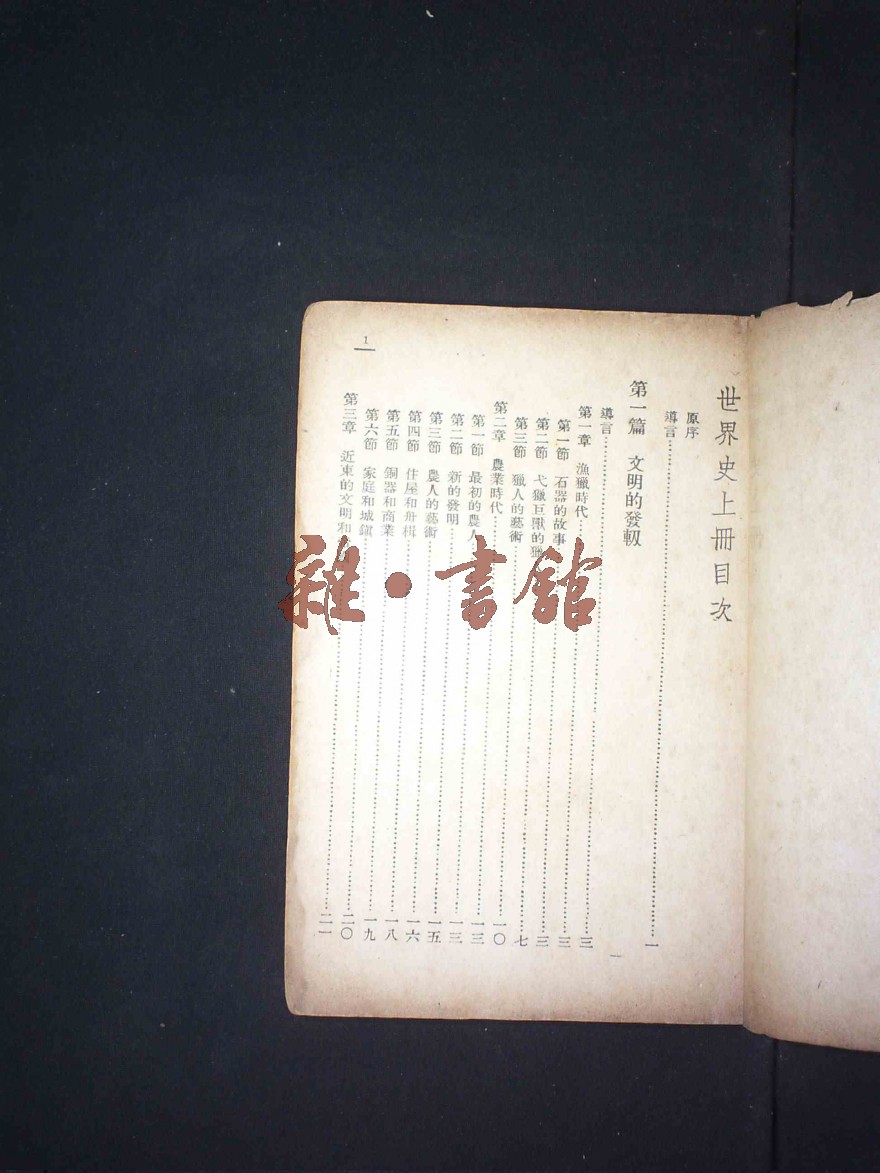 世界史上冊目次
原序
導言……一
第一篇 文明的發軔
導言……一
第一章 漁獵時代……三
第一節 石器的故事……三
第二節 弋獵巨獸的獵……三
第三節 獵人的藝術……七
第二章 農業時代……一〇
第一節 最初的農人……一三
第二節 新的發明……一三
第三節 農人的藝術……一五
第四節 住屋和舟楫……一六
第五節 銅器和商業……一八
第六節 家庭和城鎮……一九
第三章 近東的文明和……二〇
……二一
1
雜·書館